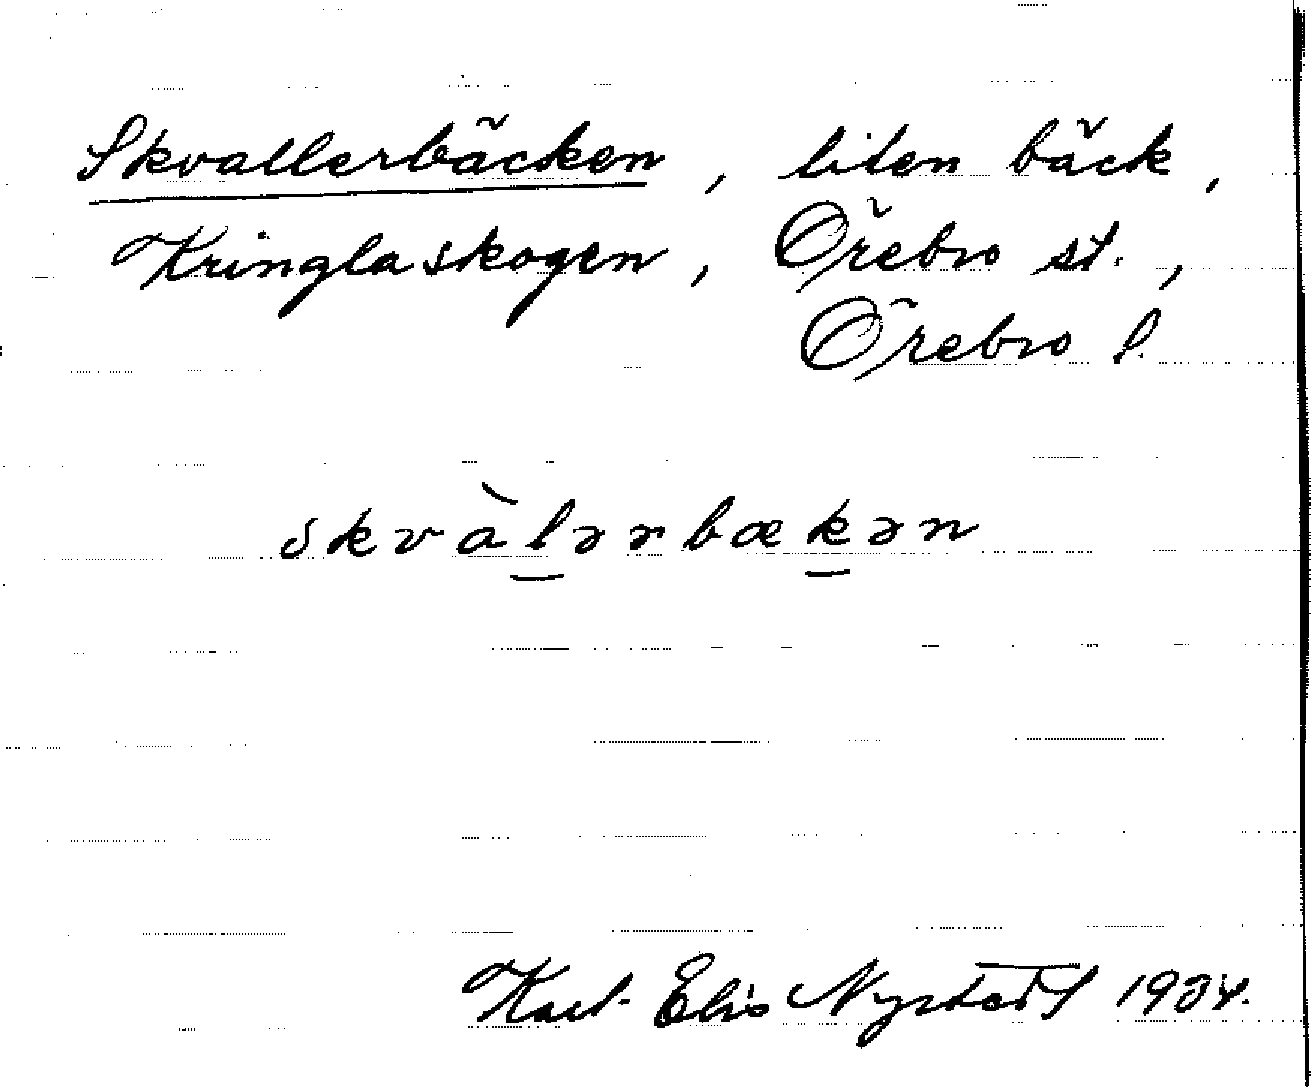 Skvallerbäcken, liten bäck,
Kringlaskogen, Örebro st.,
Örebro l.
skvàl̲ərbæk̲ən
Karl-Elis Nystedt 1934.